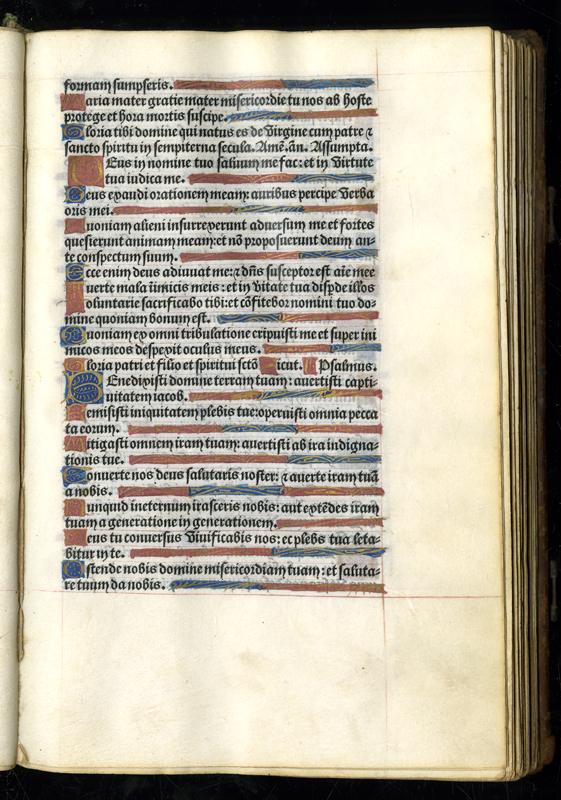 formam sumpseris.
Maria mater gratie mater misericordie tu nos ab hoste
protege et hora mortis suscipe.
Gloria tibi domine qui natus es de virgine cum patre ⁊
sancto spiritu in sempiterna secula. Amē. añ. Assumpta.
DEus in nomine tuo salvum me fac: et in virtute
tua iudica me.
Deus exaudi orationem meam: auribus percipe verba
oris mei.
Quoniam alieni insurrexerunt adversum me et fortes
quesierunt animam meam: et nō proposuerunt deum an-
te conspectum suum.
Ecce enim deus adiuvat me: ⁊ dñs susceptor est aīe mee
Averte mala inimicis meis: et in vītate tua dispde illos
Voluntarie sacrificabo tibi: et cōfitebor nomini tuo do-
mine quoniam bonum est.
Quoniam ex omni tribulatione eripuisti me et super ini
micos meos despexit oculus meus.
Gloria patri et filio et spiritui sctō Sicut. Psalmus.
BEnedixisti domine terram tuam: avertisti capti-
vitatem iacob.
Remisisti iniquitatem plebis tue: operuisti omnia pecca
ta eorum.
Mitigasti omnem iram tuam: avertisti ab ira indigna-
tionis tue.
Converte nos deus salutaris noster: ⁊ averte iram tuā
a nobis.
Nunquid in eternum irasceris nobis: aut extēdes iram
tuam a generatione in generationem.
Deus tu conversus vivificabis nos: et plebs tua leta-
bitur in te.
Ostende nobis domine misericordiam tuam: et saluta-
re tuum da nobis.